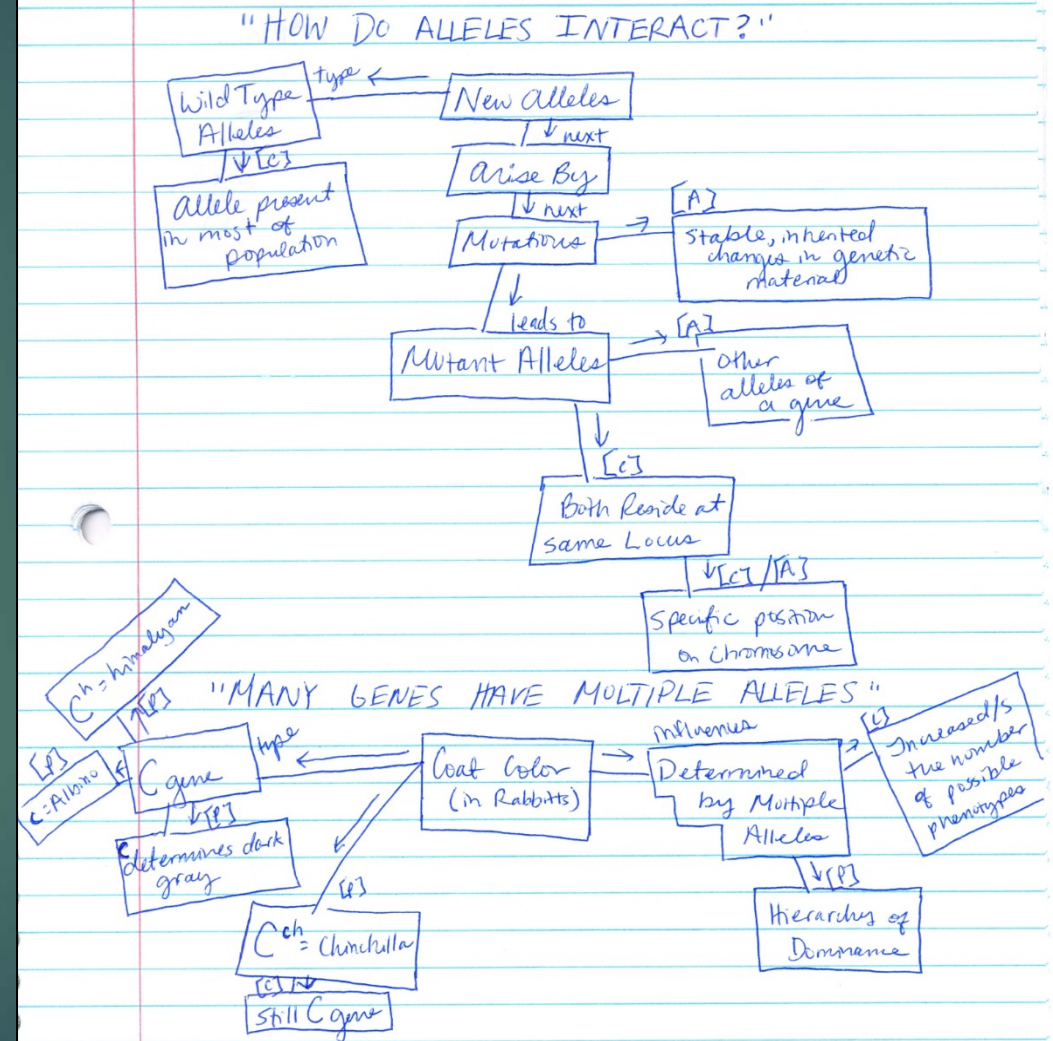 "HOW DO ALLELES INTERACT?"
Wild Type
Alleles
type ←
New alleles
↓ next
↓ [C]
allele present
in most of
population
arise By
↓ next
Mutations
→ [A]
Stable, inherited
changes in genetic
material
↓
leads to
Mutant Alleles
→ [A]
other
alleles of
a gene
↓
[C]
Both Reside at
same Locus
↓ [C] / [A]
Specific position
on Chromosome
"MANY GENES HAVE MULTIPLE ALLELES"
C^h = himalyan
↑ [P]
[P]
c = Albino
C gene
type
←
↓ [P]
C determines dark
gray
Coat Color
(in Rabbitts)
influences
→
Determined
by Multiple
Alleles
→ [C]
Increased/s
the number
of possible
phenotypes
↓ [P]
Hierarchy of
Dominance
[P]
C^ch = Chinchilla
[C] ↓
Still C gene